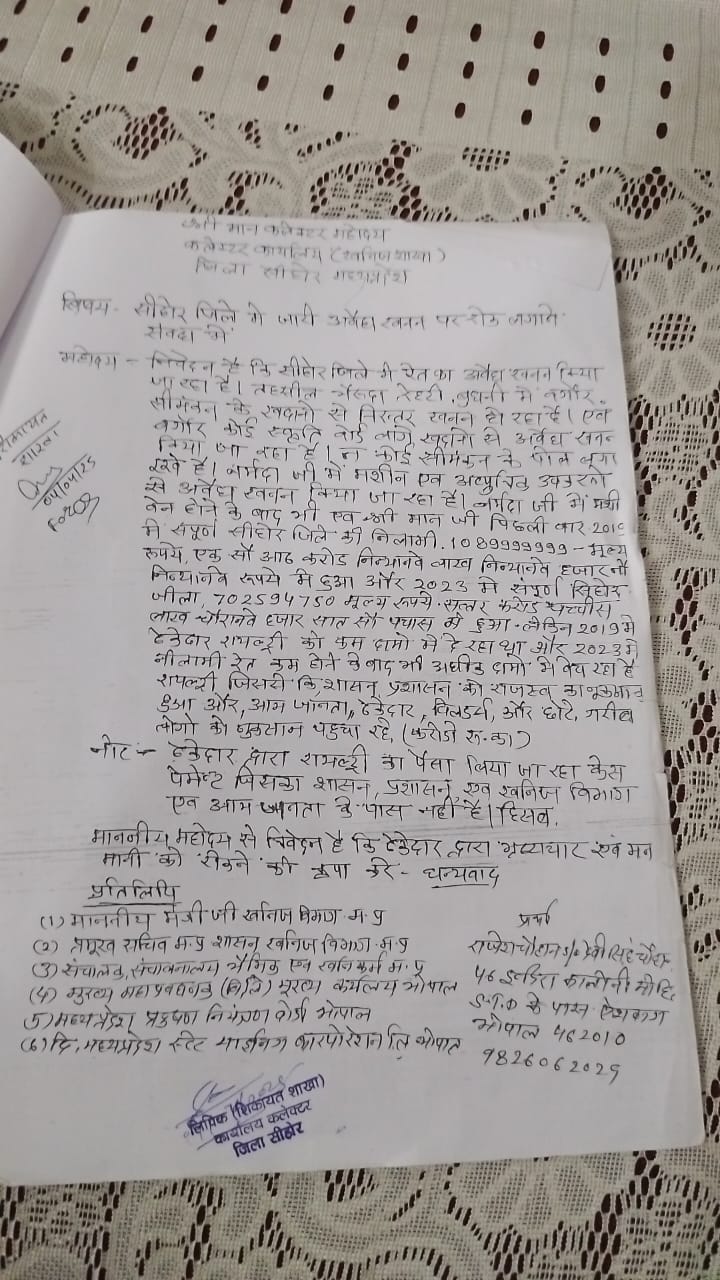 श्री मान कलेक्टर महोदय
कलेक्टर कार्यालय (खनिज शाखा)
जिला सीहोर मध्यप्रदेश
विषय - सीहोर जिले मे जारी अवैध खनन पर रोक लगाने
संबंध मे
महोदय - निवेदन है कि सीहोर जिले मे रेत का अवैध खनन किया
जा रहा है। तहसील भैरूदा रेहटी, बुधनी मे बगैर
सीमंकन के खदानो से निरन्तर खनन हो रहा है। एवं
बगैर कोई स्कृति बोर्ड लगे खदानो से अवैध खनन
किया जा रहा है। न कोई सीमंकन के पोल लगा
रखे है। नर्मदा जी में मशीन एवं उपकरणो
से अवैध खनन किया जा रहा है। नर्मदा जी में मशी
बेन होने के बाद भी एवं श्री मान जी पिछली बार 2019
मे संपूर्ण सीहोर जिले की निलामी. 1089999999 - मूल्य
रूपये, एक सौ आठ करोड निन्यानवे लाख निन्यानवे हजार नौ
निन्यानवे रूपये मे हुआ और 2023 मे संपूर्ण सिहोर
जीला, 702594750 मूल्य रूपये सत्तर करोड पच्चीस
लाख चौरानवे हजार सात सौ पचास मे हुआ - लेकिन 2019 मे
ठेकेदार रायल्टी को कम दामो मे दे रहा था और 2023 मे
नीलामी रेत कम होने के बाद भी अधीक दामो मे बेच रहा है
रायल्टी जिससे कि, शासन, प्रशासन को राजस्व का नुकसान
हुआ और, आम जानता, ठेकेदार, बिलडर्स, और छोटे, गरीब
लोगो को नुकसान पहुचा रहे, (करोडो रू. का)
नोट :- ठेकेदार द्वारा रायल्टी का पैसा लिया जा रहा केस
पेमेन्ट जिसका शासन, प्रशासन, एवं खनिज विभाग
एवं आम जानता के पास नही है। हिसब.
माननीय महोदय से निवेदन है कि ठेकेदार द्वारा भ्रष्टाचार एवं मन
मानी को रोकने की कृपा करे - धन्यवाद
शिकायत
शाखा
04/04/25
प्रतिलिपि
(1) माननीय मंत्री जी खनिज विभाग म.प्र
(2) प्रमुख सचिव म.प्र शासन खनिज विभाग म.प्र
(3) संचालक, संचालनालय भौमिक एवं खनिकर्म म.प्र
(4) मुख्य महाप्रबन्धक (मिले) मुख्य कार्यलय भोपाल
(5) मध्यप्रदेश प्रदुषण नियंत्रण बोर्ड भोपाल
(6) दि, मध्यप्रदेश स्टेट माइनिंग कारपोरेशन लि भोपाल
प्रार्थी
राजेश चौहान S/o सिंह चौहा
46 इन्दिरा कालोनी
के पास ऐशबाग
भोपाल 462010
9826062029
लिपिक (शिकायत शाखा)
कार्यालय कलेक्टर
जिला सीहोर